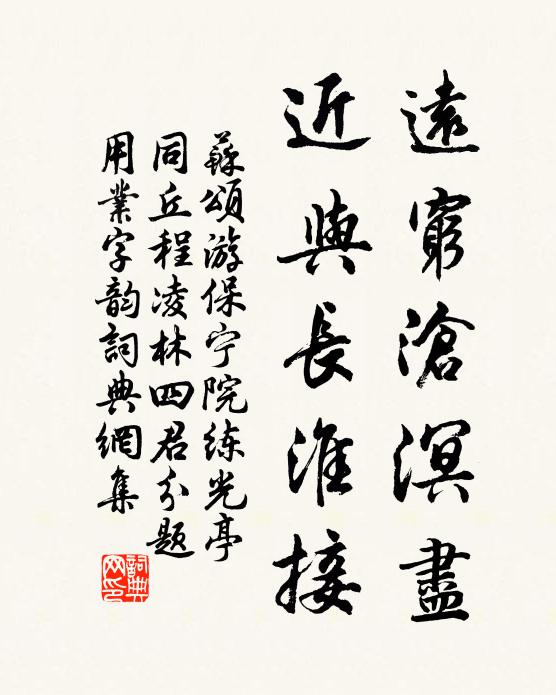 遠窮滄溟盡
近與長淮接
蘇頌游保宁院练光亭
同丘程凌林四君分题
用業字韵詞典網集
詞典
网印